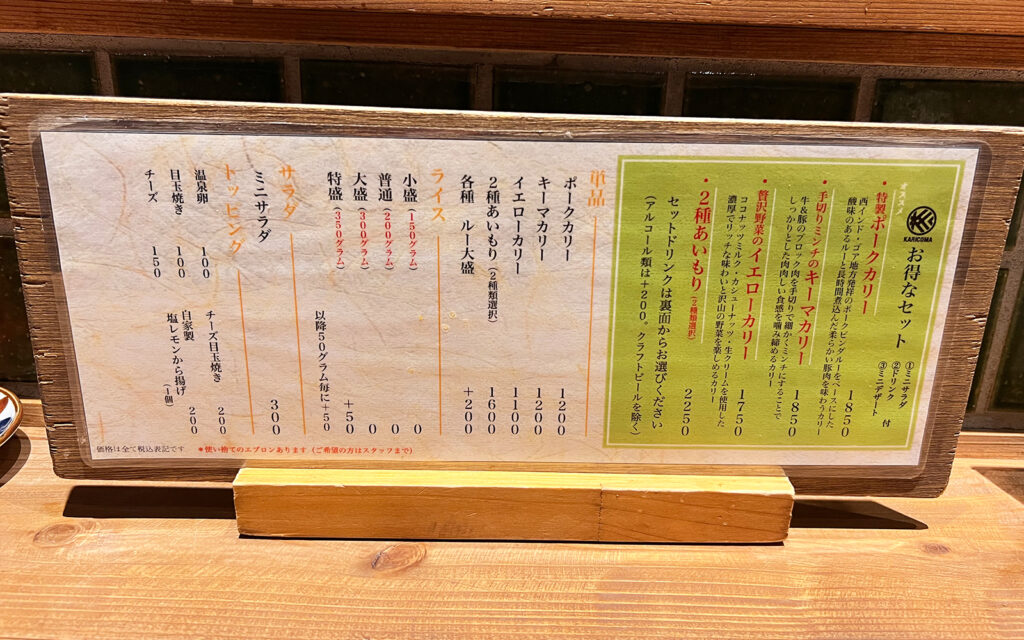 オススメ
KARICOMA
お得なセット
①ミニサラダ
②ドリンク
③ミニデザート
付
・特製ポークカリー
西インド・ゴア地方発祥のポークビンダルーをベースにした
酸味のあるルーと長時間煮込んだ柔らかい豚肉を味わうカリー
1850
・手切りミンチのキーマカリー
牛&豚のブロック肉を手切りで細かくミンチにすることで
しっかりとした肉肉しい食感を噛み締めるカリー
1850
贅沢野菜のイエローカリー
ココナッツミルク・カシューナッツ・生クリームを使用した
濃厚でリッチな味わいと沢山の野菜を楽しめるカリー
1750
・2種あいもり(2種類選択)
2250
セットドリンクは裏面からお選びください
(アルコール類は+200。クラフトビールを除く)
単品
ポークカリー 1200
キーマカリー 1200
イエローカリー 1100
2種あいもり(2種類選択) 1600
各種 ルー大盛 +200
ライス
小盛(150グラム) 0
普通(200グラム) 0
大盛(300グラム) 0
特盛(350グラム) +50
以降50グラム毎に+50
サラダ
ミニサラダ 300
トッピング
温泉卵 100
目玉焼き 100
チーズ 150
チーズ目玉焼き 200
自家製
塩レモンから揚げ 200
(1個)
価格は全て税込表記です
*使い捨てのエプロンあります(ご希望の方はスタッフまで)